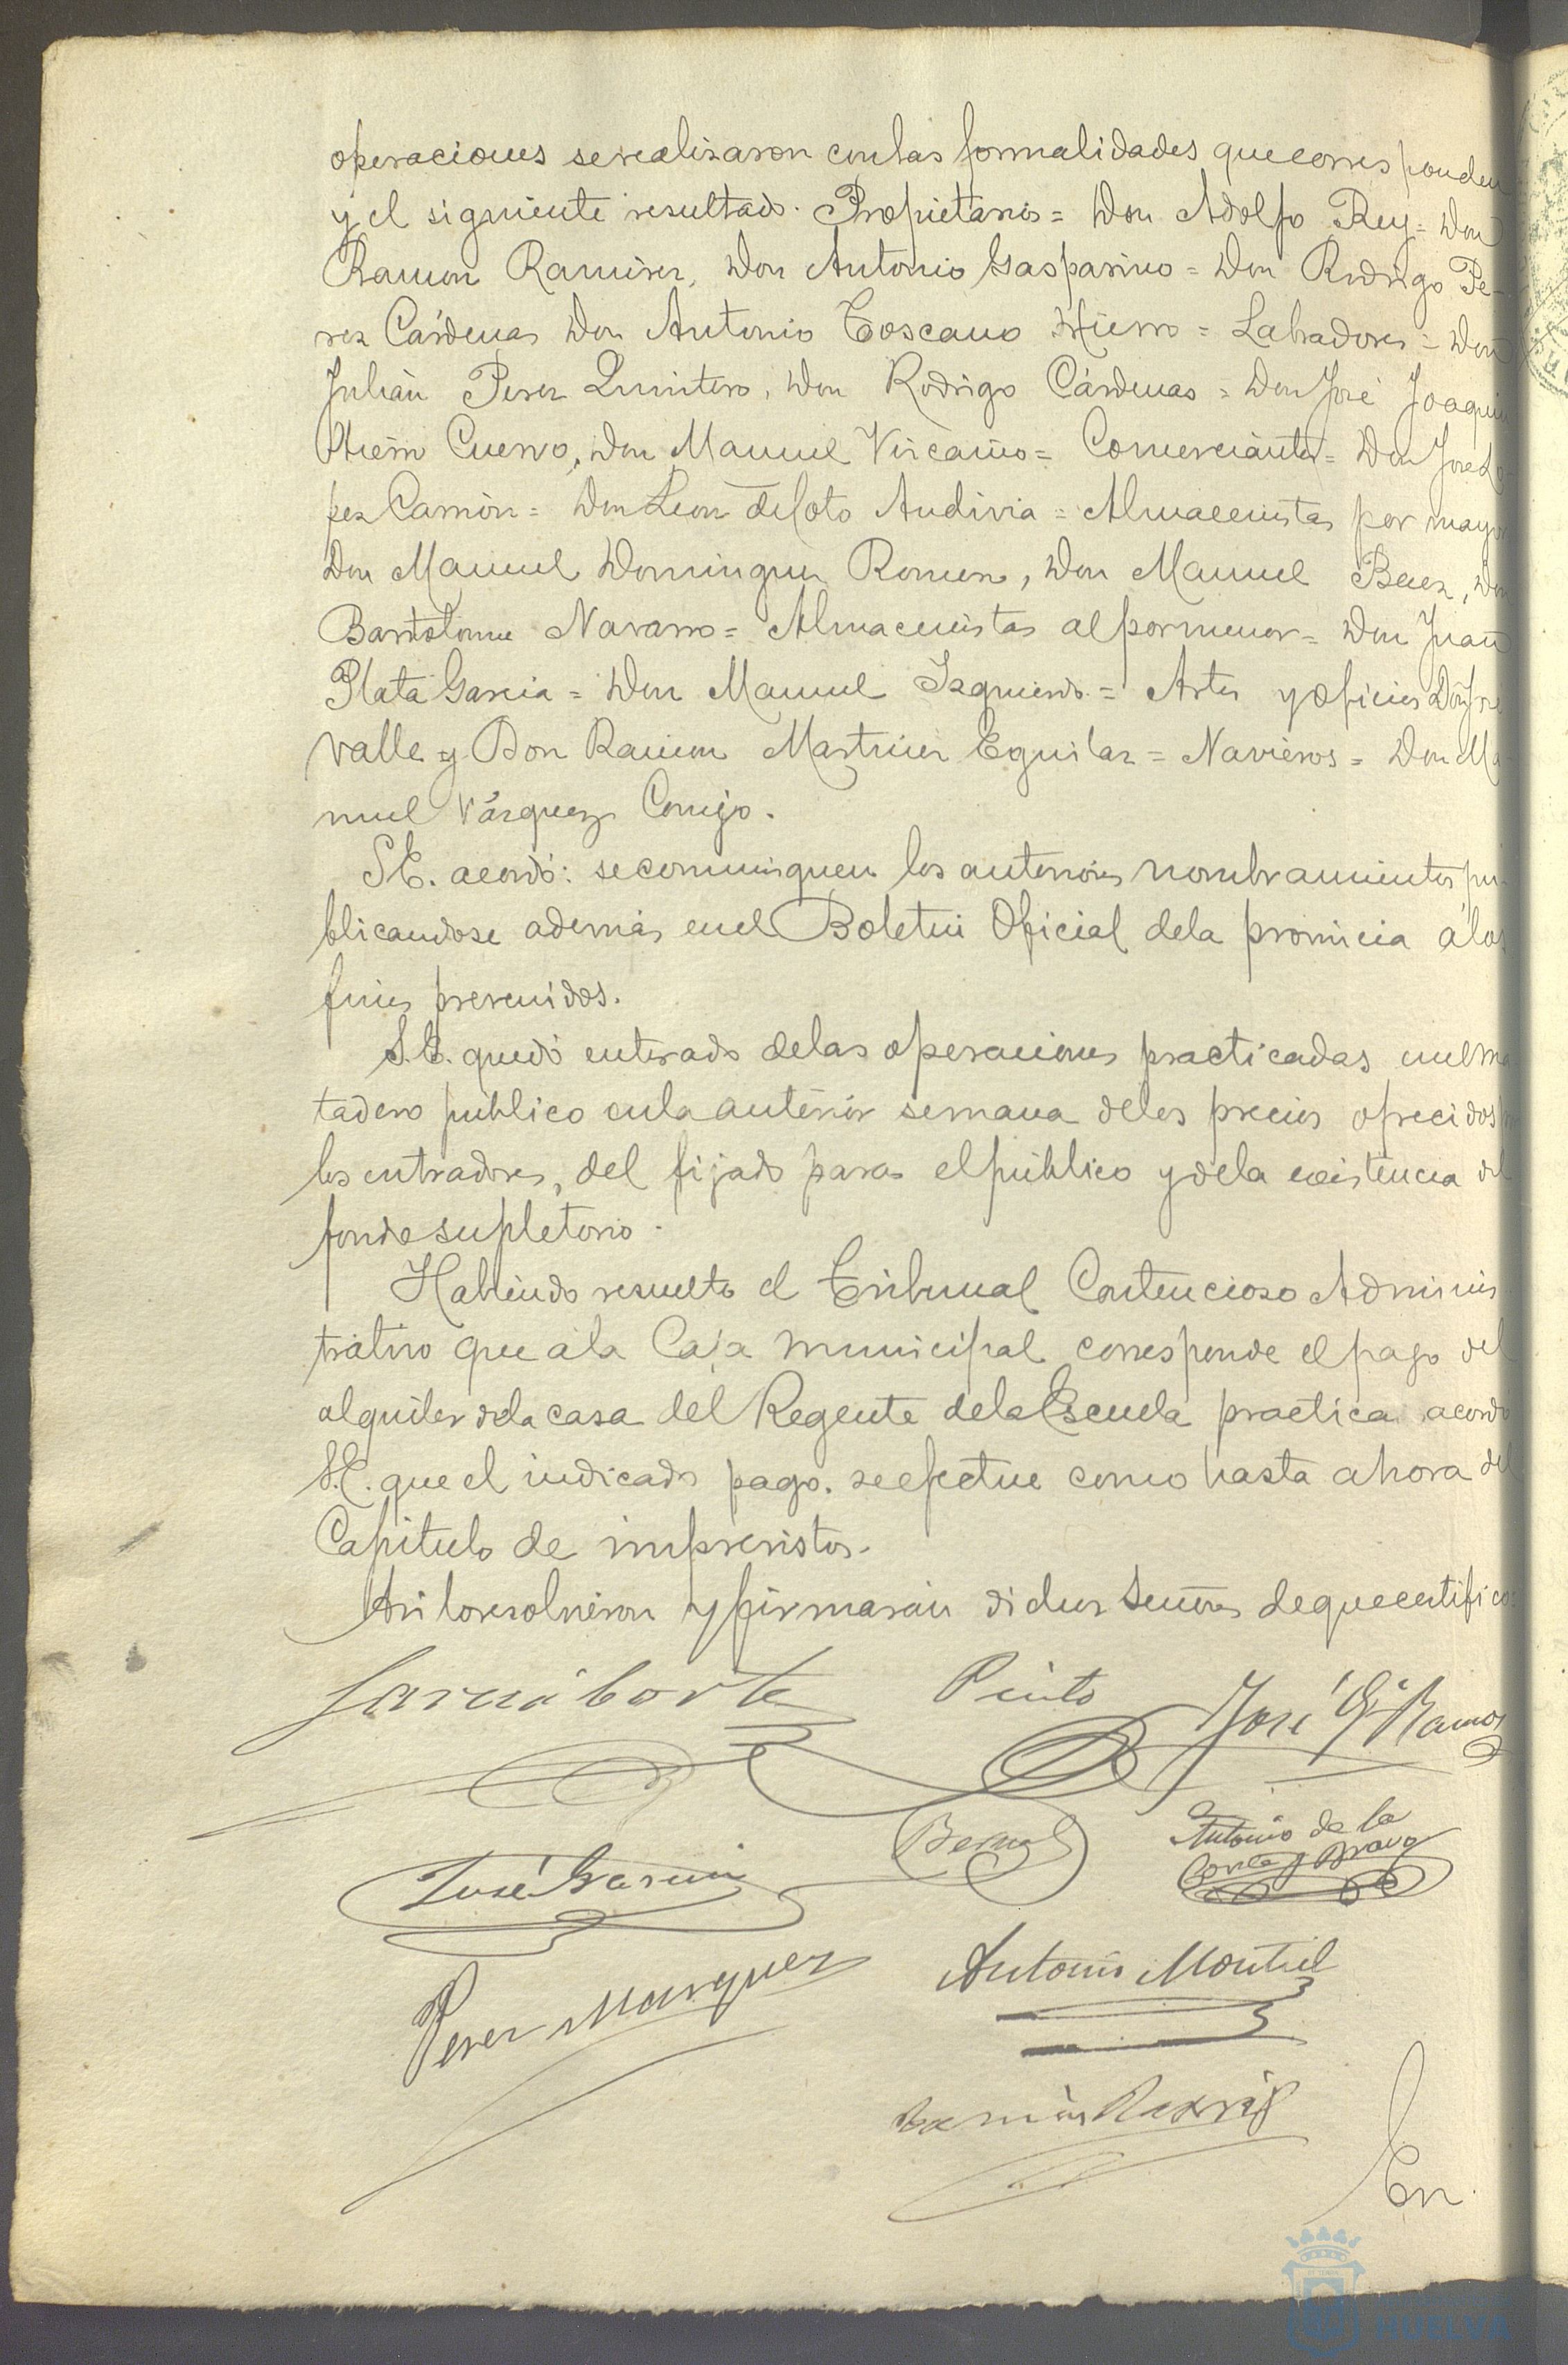 operaciones se realizaron con las formalidades que corresponden
y el siguiente resultado. Propietarios = Don Adolfo Rey = Don
Ramon Ramirez, Don Antonio Gasparino = Don Rodrigo Pe-
rez Cárdenas Don Antonio Toscano Hierro = Labradores = Don
Julián Perez Quintero, Don Rodrigo Cárdenas = Don José Joaquin
Hierro Cuervo, Don Manuel Vizcaino = Comerciantes = Don José Lo
pez Carrión = Don Leon de Soto Andivia = Almacenistas por mayor
Don Manuel Dominguez Romero, Don Manuel Baez, Don
Bartolome Navarro = Almacenistas al por menor = Don Juan
Plata Garcia = Don Manuel Izquierdo = Artes y Oficios Don José
Valle = y Don Ramon Martinez Eguilaz = Navieros = Don Ma
nuel Vázquez Cornejo.
S.E. acordó: se comuniquen los anteriores nombramientos pu-
blicandose además en el Boletin Oficial de la provincia á los
fines prevenidos.
S.E. quedó enterado de las operaciones practicadas en el ma
tadero público en la anterior semana de los precios ofrecidos por
los entradores, del fijado para el público y de la existencia del
fondo supletorio.
Habiendo resuelto el Tribunal Contencioso Adminis
trativo que á la Caja municipal corresponde el pago del
alquiler de la casa del Regente de la Escuela practica acordó
S.E. que el indicado pago. se efectue como hasta ahora del
Capitulo de imprevistos.
Asi lo resolvieron y firmarán dichos Señores de que certifico:
Garcia Corte Pinto José G. Ramos
José Garcia Bernal Antonio de la
Corte y Bravo
Perez Marquez Antonio Montiel
En
HUELVA